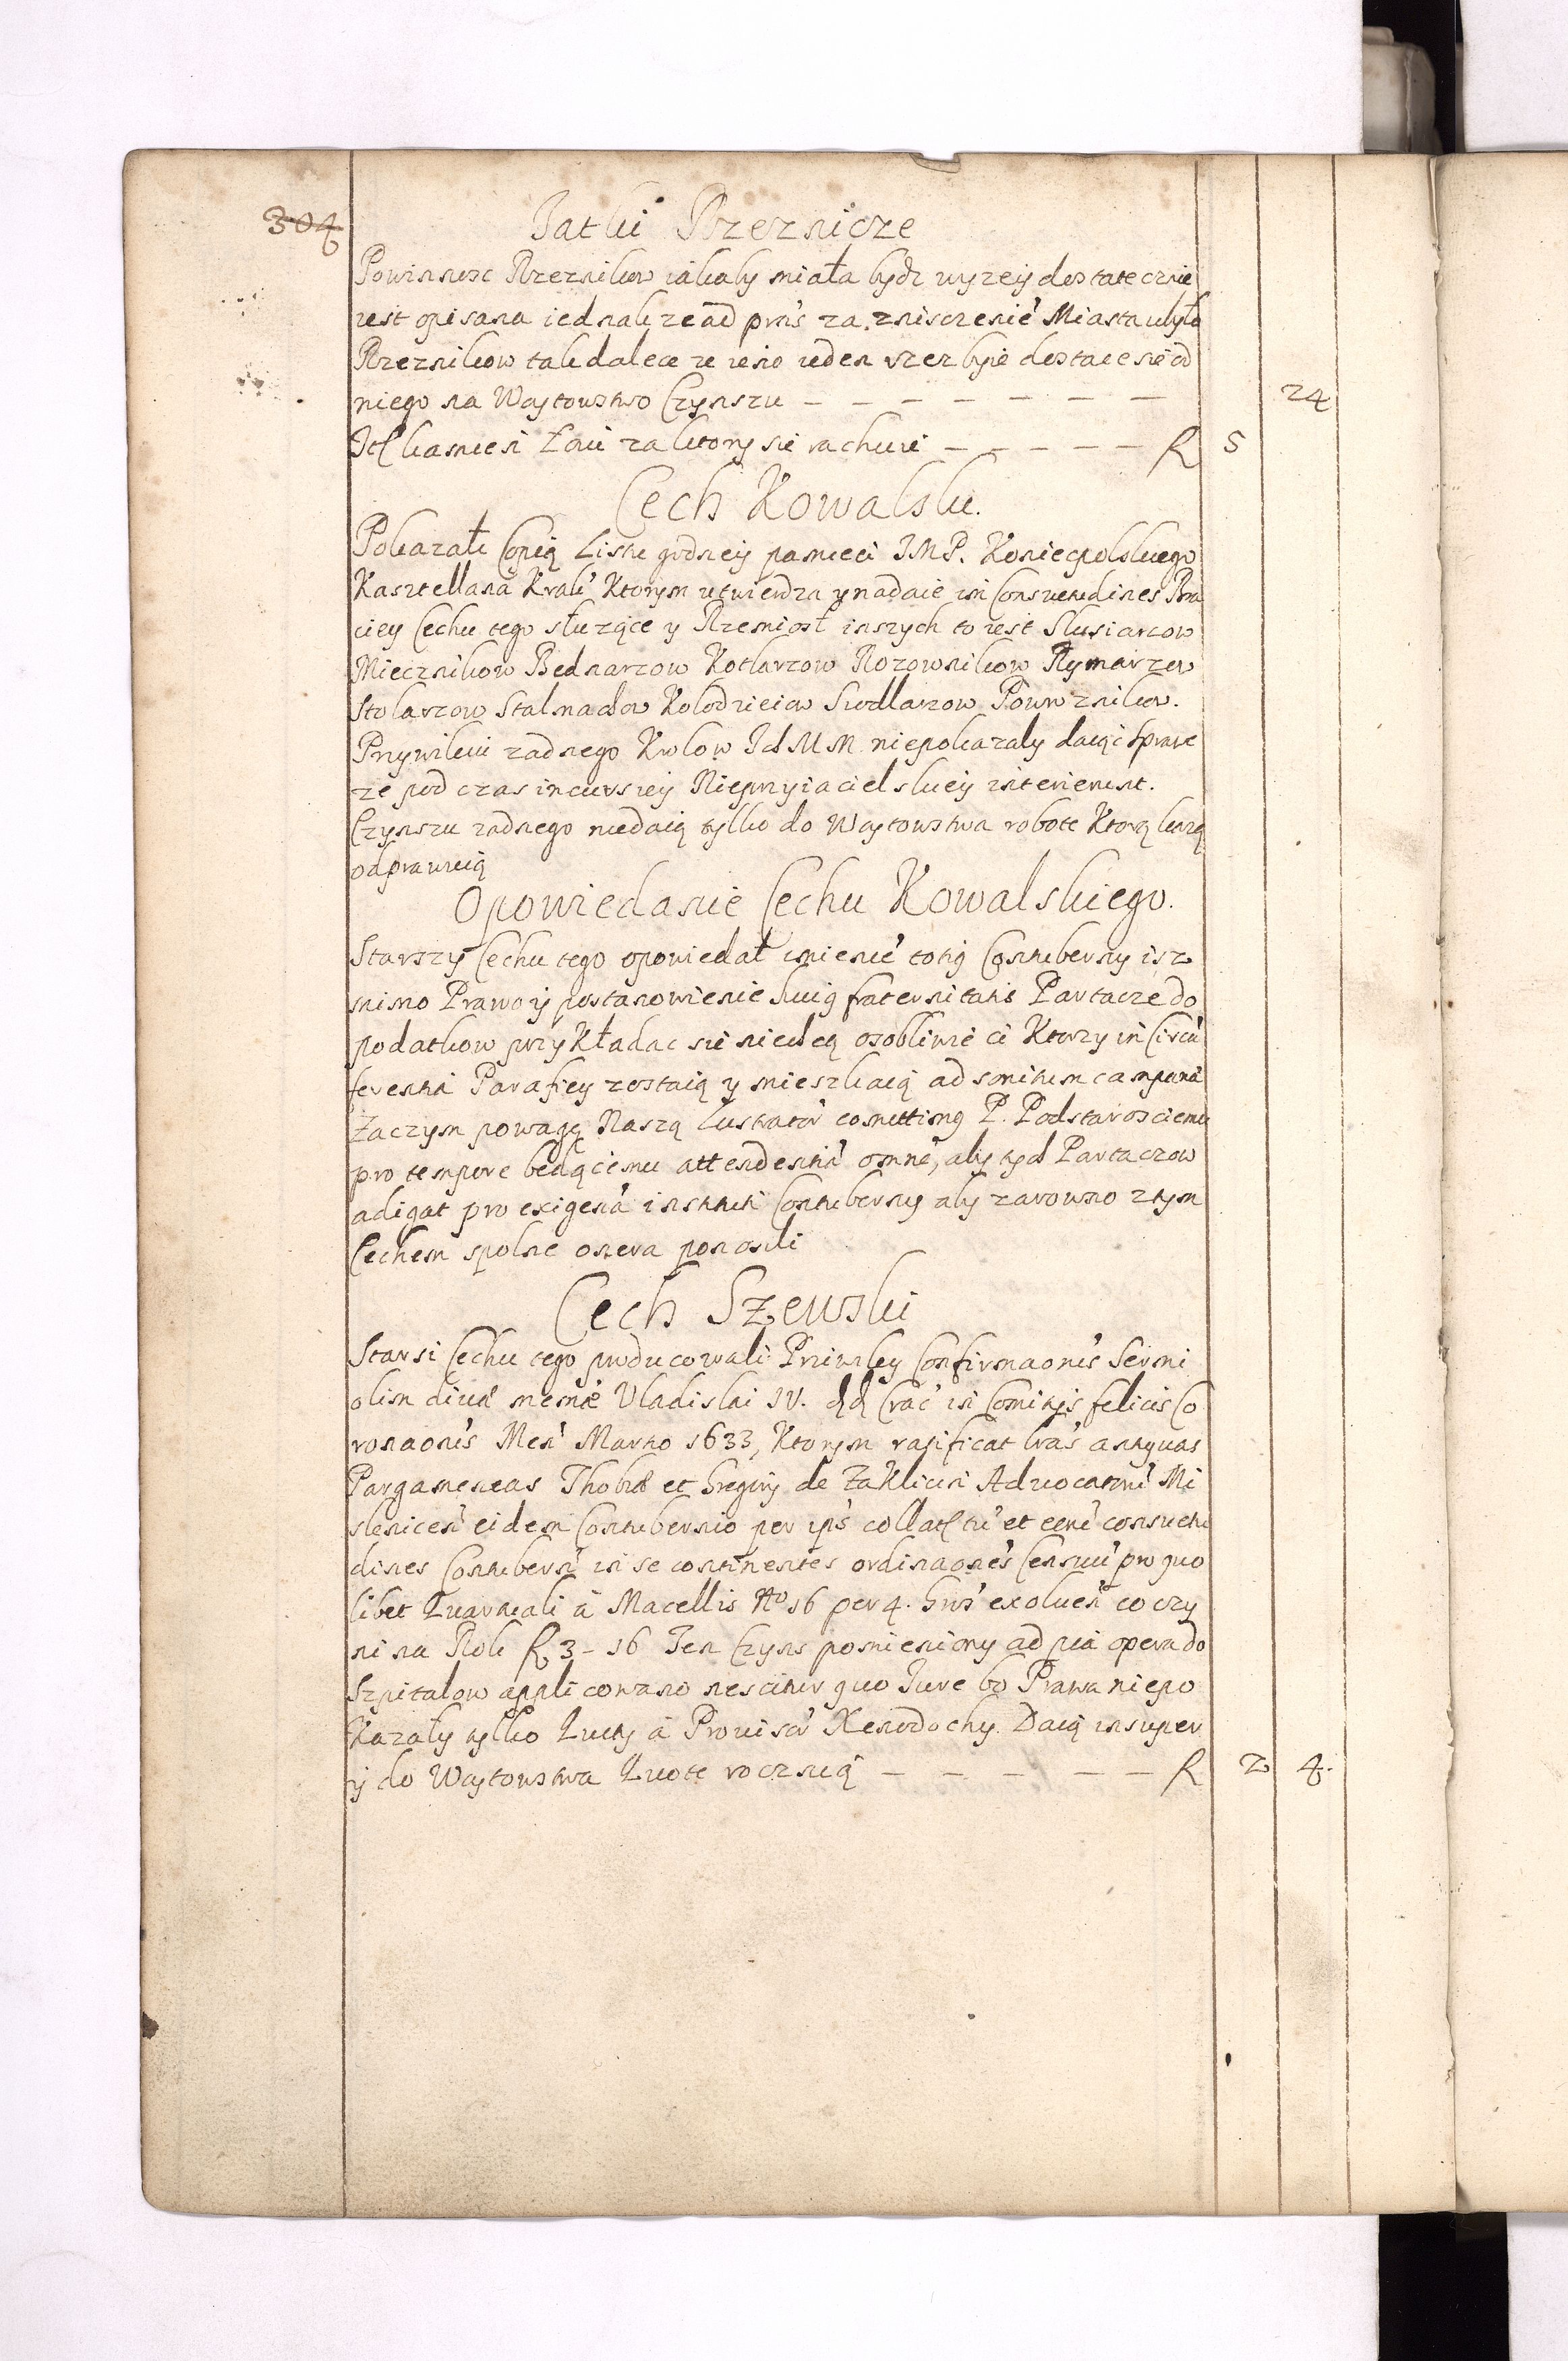 304
Jatki Rzeznicze
Powinnosc Rzeznikow iakaby miała bydz wyzeiy dostatecznie
iest opisana iednak ze ad prns za zniscenie Miasta ubyło
Rzeznikow tak dalece ze ieno ieden szerbyie dostaie sie od
niego na Waytowstwo Czynszu — — — — — — — — 24
It kamien Łoiu za ktory sie rachuie — — — — — R 5
Cech Kowalski.
Pokazali Copią Listu godneiy pamieci JMP. Koniecpolskiego
Kasztellana Krak Ktorym utwierdza y nadaie im Consuetudines Bra
ciey Cechu tego słuzące y Rzemiosł inszych to iest Slusiarcow
Miecznikow Bednarzow Kotlarzow Rozownikow Rymarzow
Stolarzow Stalmachow Kolodzieiow Siodlarzow Powroznikow.
Przywileiu zadnego Krolow Ich M M. niepokazaly daiąc Sprawe
ze pod czas incursiey Nieprzyiacielskieiy interierunt.
Czynszu zadnego niedaią tylko do Waytowstwa robote Ktorą kazą
odprawuią
Opowiedanie Cechu Kowalskiego.
Starszy Cechu tego opowiedał imienie totig Contuberny isz
mimo Prawo y postanowienie Swig fraternitatis Partacze do
podatkow przykładac sie niechcą osobliwie ci Ktorzy in Circu
ferentia Parafiey zostaią y mieszkaią ad sonitum campana
Zaczym powagą Naszą Lustrator comittimg P. Podstarosciemu
pro tempore będącemu attendentia omne, aby tych Partaczow
adigat pro exigena instituti Contuberny aby zarowno z tym
Cechem spolne onera ponosili
Cech Szewski
Starsi Cechu tego producowali Priwiley Confirmaonis Sermi
olim diua mema Vladislai IV. dd Crac in Comitys felicis Co
ronaonis Men Martio 1633, Ktorym ratificat lras antiquas
Pargameneas Thoba et Gregorij de Zakliczin Aduocatorũ Mi
slenicen eidem Contubernio per ips collat tu et cere consuetu
dines Contuberni in se continentes ordinaones Censuu pro quo
libet Quartuali a Macellis No 16 per 4. Gros exoluen co czy
ni na Rok R 3 - 16 Ten Czyns pomieniony ad pia opera do
Szpitalow applicowano nescitur quo Jure bo Prawa niepo
Kazały tylko Quity a Prouisor Xenodochy. Daią insuper
y do Waytowstwa Quote roczną — — — — — — R 2 4.